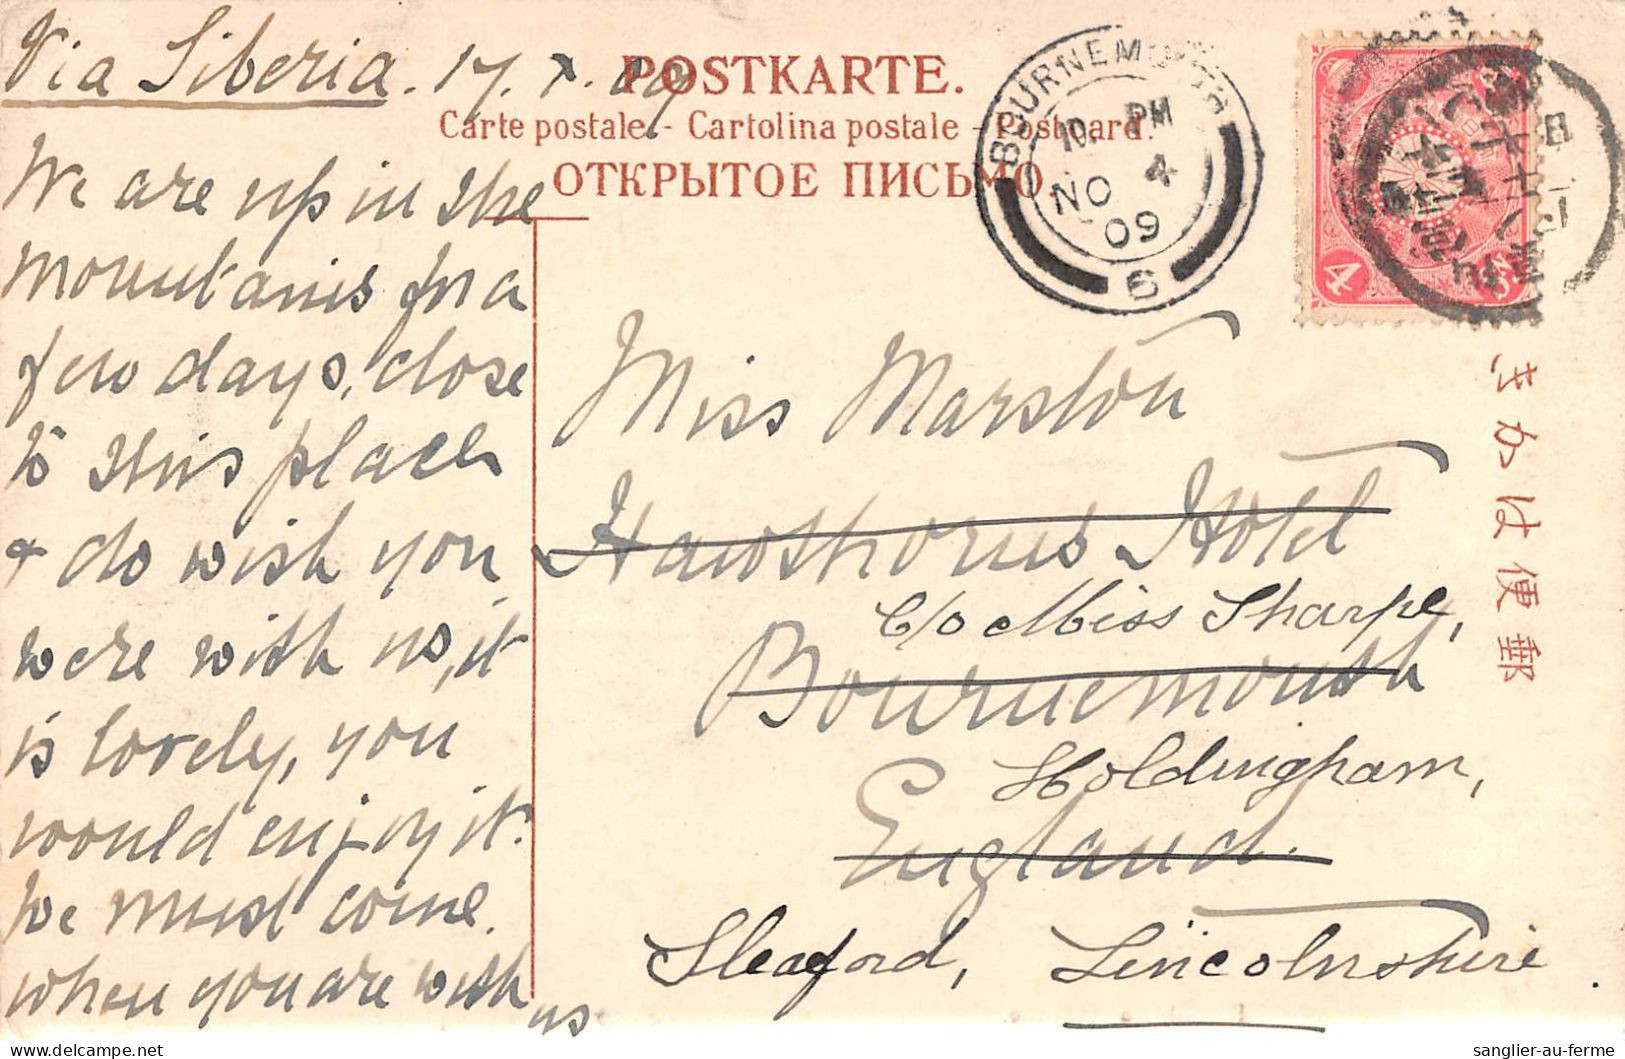 Via Siberia. 17. X. 09
POSTKARTE.
Carte postale - Cartolina postale - Postcard.
ОТКРЫТОЕ ПИСЬМО.
We are up in the
mountains for a
few days, close
to this place
& do wish you
were with us, it
is lovely, you
would enjoy it.
We must come
when you are with
us
BOURNEMOUTH
10. PM
NO 4
09
6
4
Sn.
きかは便郵
Miss Marston
Hawthorns Hotel
C/o Miss Sharpe,
Bournemouth
Holdingham,
England.
Sleaford, Lincolnshire.
sanglier-au-ferme